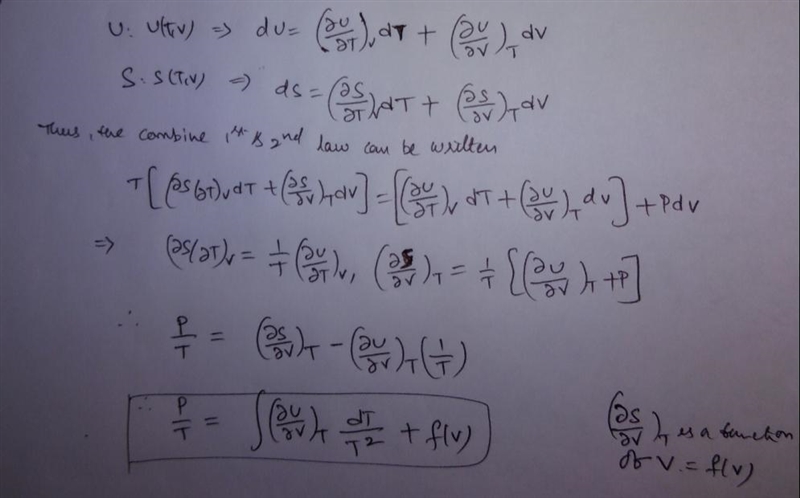 U: U(T,V) ⇒ dU = (∂U/∂T)_V dT + (∂U/∂V)_T dV
S: S(T,V) ⇒ dS = (∂S/∂T)_V dT + (∂S/∂V)_T dV
Thus, the combine 1st & 2nd law can be written
T[(∂S/∂T)_V dT + (∂S/∂V)_T dV] = [(∂U/∂T)_V dT + (∂U/∂V)_T dV] + PdV
⇒ (∂S/∂T)_V = 1/T (∂U/∂T)_V, (∂S/∂V)_T = 1/T [(∂U/∂V)_T + P]
∴ P/T = (∂S/∂V)_T - (∂U/∂V)_T (1/T)
∴ P/T = ∫(∂U/∂V)_T dT/T² + f(V)
(∂S/∂V)_T is a function
of V = f(V)